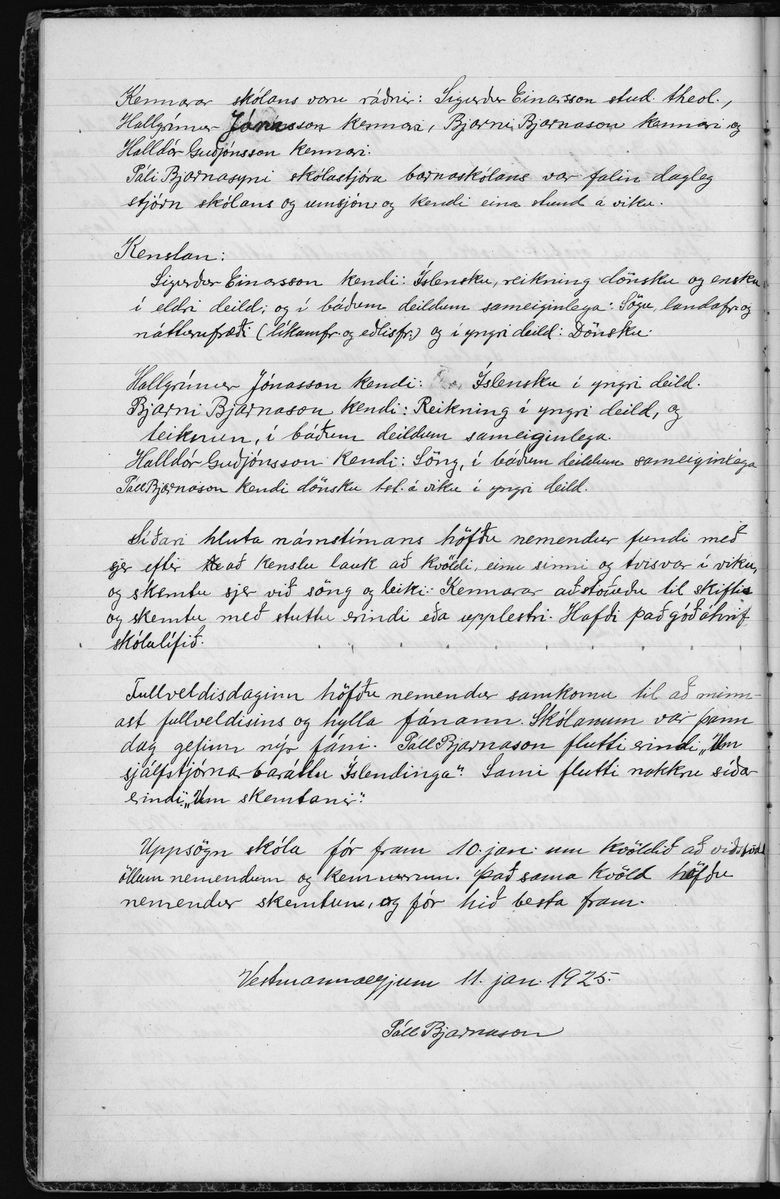 Kennarar skólans voru ráðnir: Sigurður Einarsson stud. theol.,
Hallgrímur Jónasson kennari, Bjarni Bjarnason kennari og
Halldór Guðjónsson kennari.
Páli Bjarnasyni skólastjóra barnaskólans var falin dagleg
stjórn skólans og umsjón og kendi eina stund á viku.
Kenslan:
Sigurður Einarsson kendi: Íslensku, reikning dönsku og ensku
í eldri deild; og í báðum deildum sameiginlega: Sögu, landafr. og
náttúrufræði (líkamfr. og eðlisfr.) og í yngri deild: Dönsku.
Hallgrímur Jónasson kendi: Íslensku í yngri deild.
Bjarni Bjarnason kendi: Reikning í yngri deild, og
teiknun, í báðum deildum sameiginlega.
Halldór Guðjónsson kendi: Söng, í báðum deildum sameiginlega
Páll Bjarnason kendi dönsku 1 st. á viku í yngri deild.
Síðari hluta námstímans höfðu nemendur fundi með
sjer eftir að kenslu lauk að kvöldi, einu sinni og tvisvar í viku,
og skemtu sjer við söng og leiki. Kennarar aðstoðuðu til skiftis
og skemtu með stuttu erindi eða upplestri. Hafði það góð áhrif
skólalífið.
Fullveldisdaginn höfðu nemendur samkomu til að minn-
ast fullveldisins og hylla fánann. Skólanum var þann
dag gefinn nýr fáni. Páll Bjarnason flutti erindi „Um
sjálfstjórnarbaráttu Íslendinga". Sami flutti nokkru síðar
erindi „Um skemtanir".
Uppsögn skóla fór fram 10. jan. um kvöldið að viðstödd
öllum nemendum og kennurum. Það sama kvöld höfðu
nemendur skemtun, og fór hið besta fram.
Vestmannaeyjum 11. jan. 1925.
Páll Bjarnason